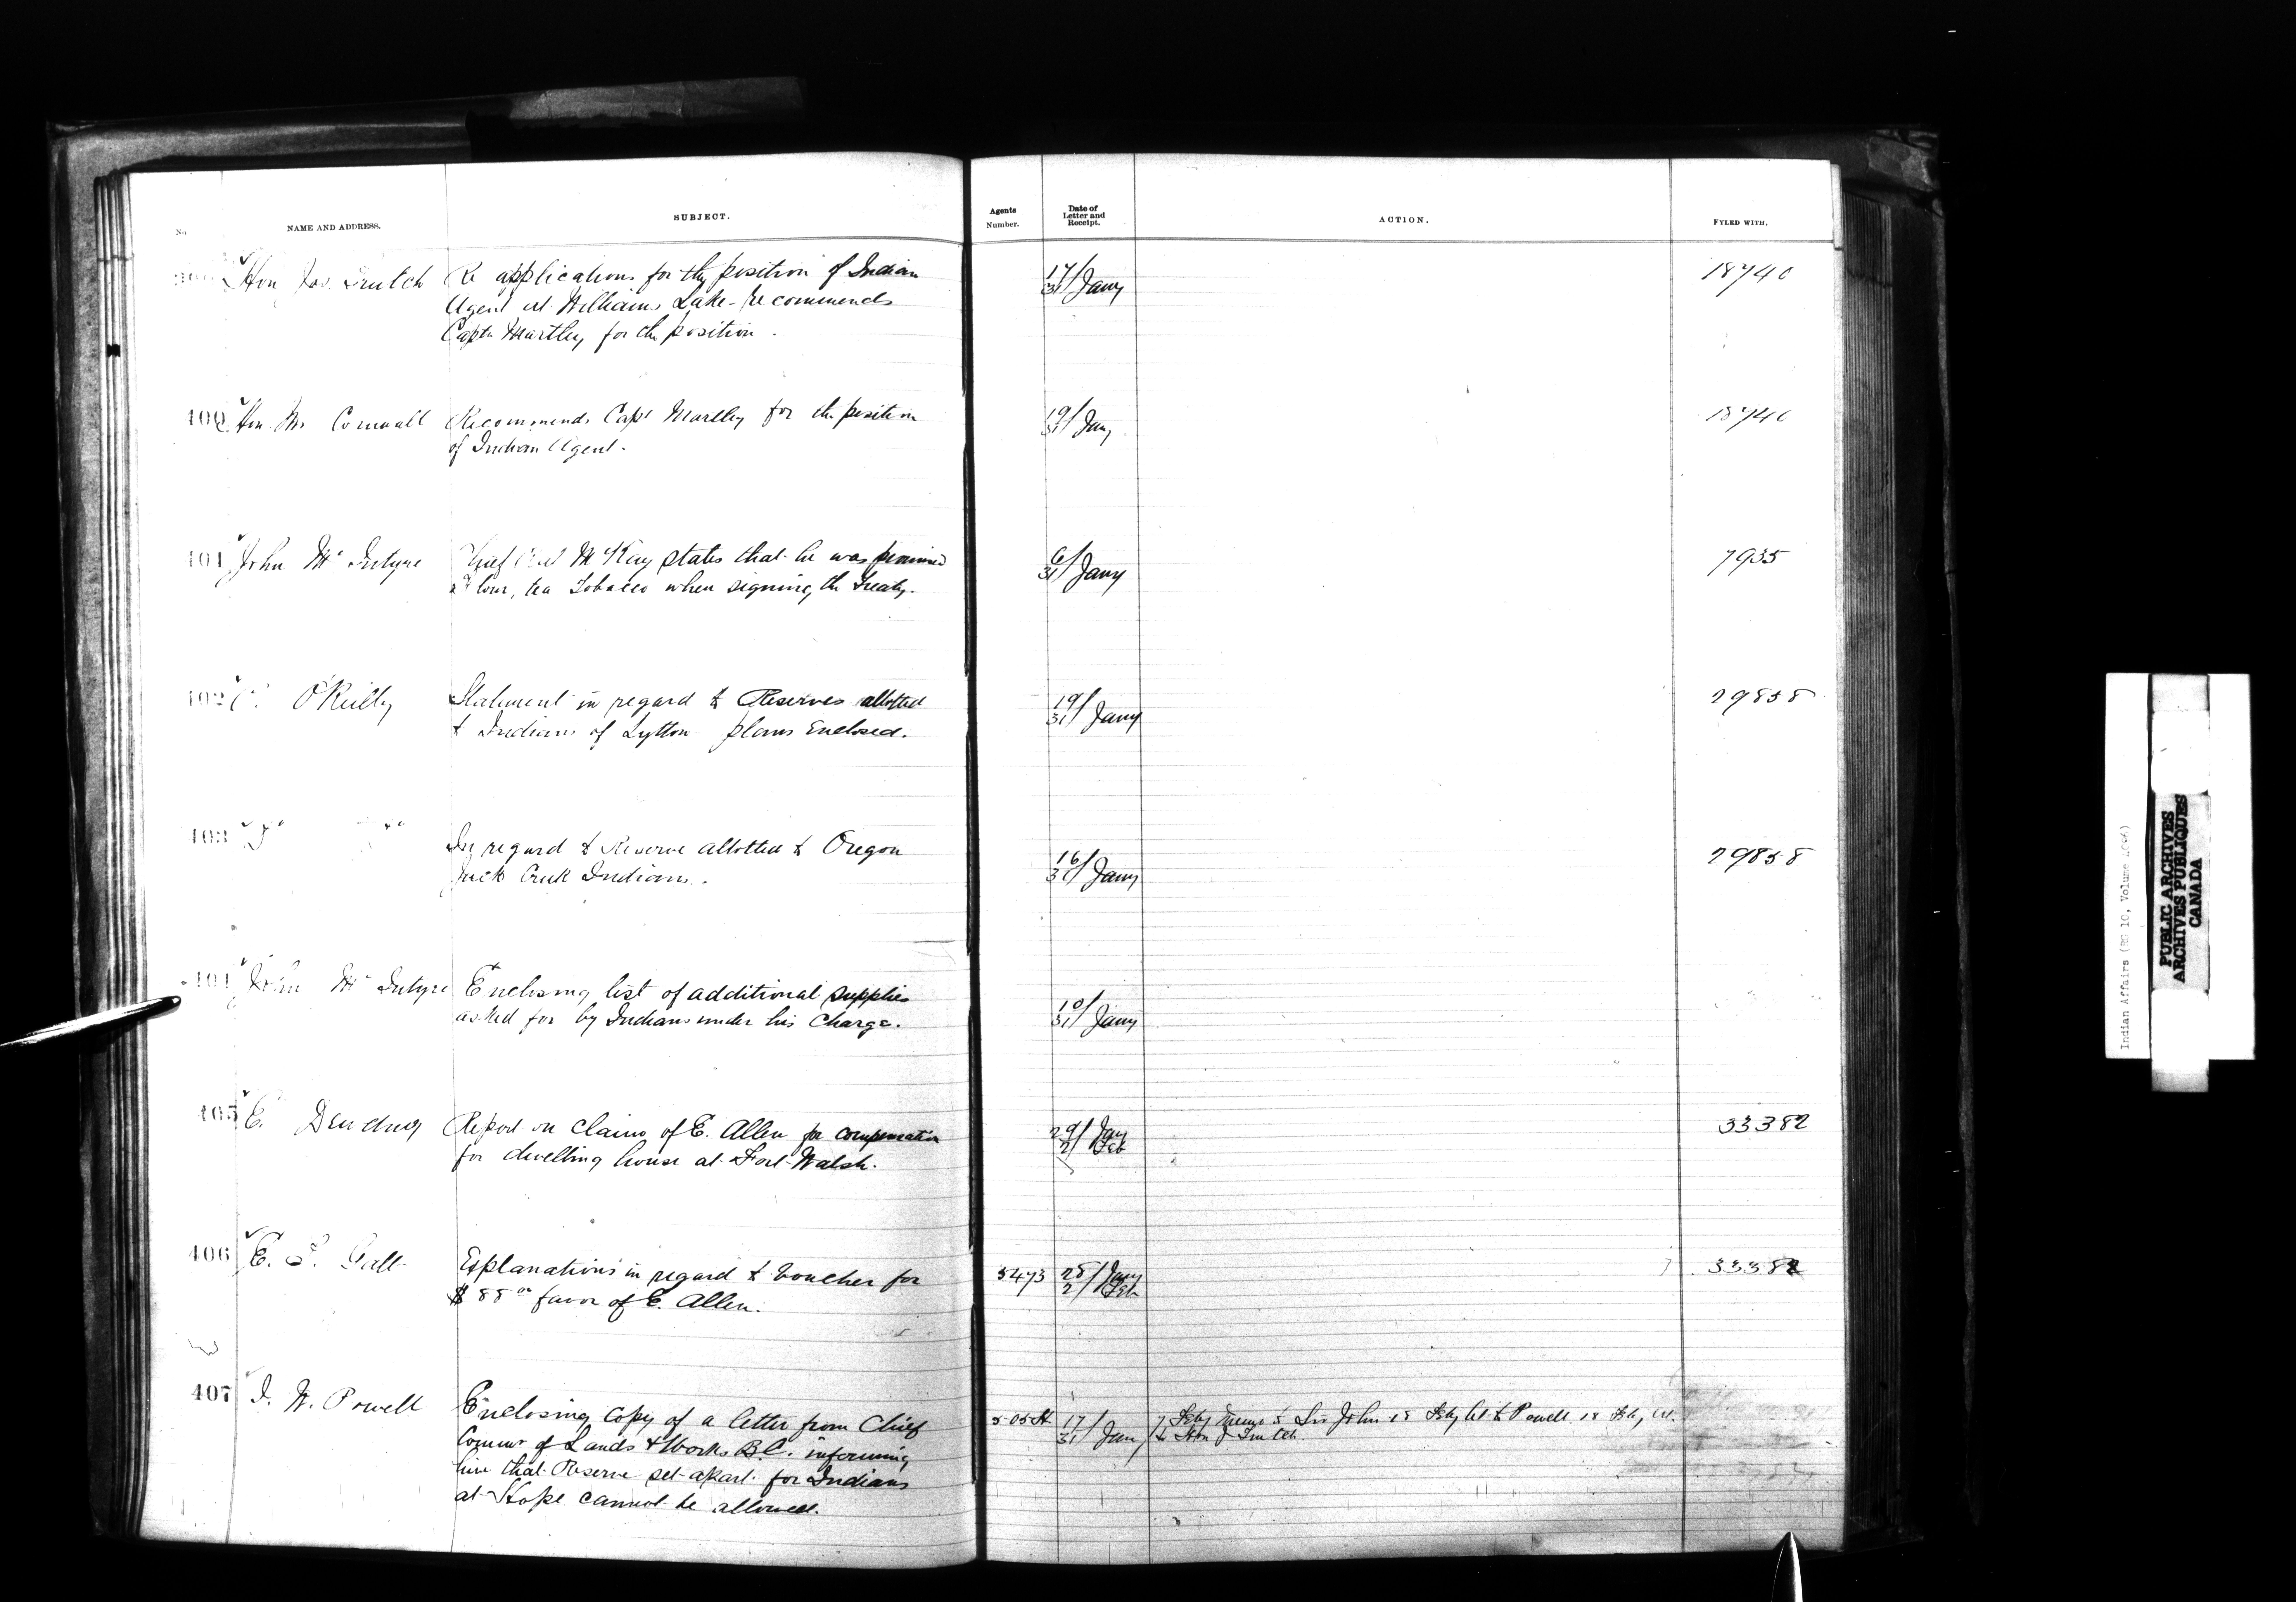 No.
NAME AND ADDRESS.
SUBJECT.
Agents
Number.
Date of
Letter and
Receipt.
ACTION.
FYLED WITH.
Hon Jos. Trutch
Re applications for the position of Indian
Agent at Williams Lake - recommends
Capt. Martley for the position.
17/31 Jany
18740
400 Hon Mr Cornwall
Recommends Capt Martley for the position
of Indian Agent.
19/31 Jany
18740
401 John Mc Intyre
Chief McKay states that he was promised
flour, tea Tobacco when signing the Treaty.
6/31 Jany
7935
402 O'Reilly
Statement in regard to Reserves allotted
to Indians of Lytton plans Enclosed.
19/31 Jany
29858
403 Do Do
In regard to Reserve allotted to Oregon
Jack Creek Indians.
16/31 Jany
29858
404 John Mc Intyre
Enclosing list of additional supplies
asked for by Indians under his Charge.
10/31 Jany
405 E. Dewdney
Report on claim of E. Allen for compensation
for dwelling house at Fort Walsh.
29/2 Jany Feb
33382
406 E. T. Galt
Explanations in regard to voucher for
$88 00 favor of E. Allen.
5473
28/2 Jany Feb
33382
407 I. W. Powell
Enclosing Copy of a letter from Chief
Commr of Lands & Works B.C. informing
him that Reserve set apart for Indians
at Hope cannot be allowed.
505
17/31 Jany
7 Feby Memo to Sir John 18 Feby to Powell 18 Feby
to Hon J Trutch
Indian Affairs (RG 10, Volume
PUBLIC ARCHIVES
ARCHIVES PUBLIQUES
CANADA